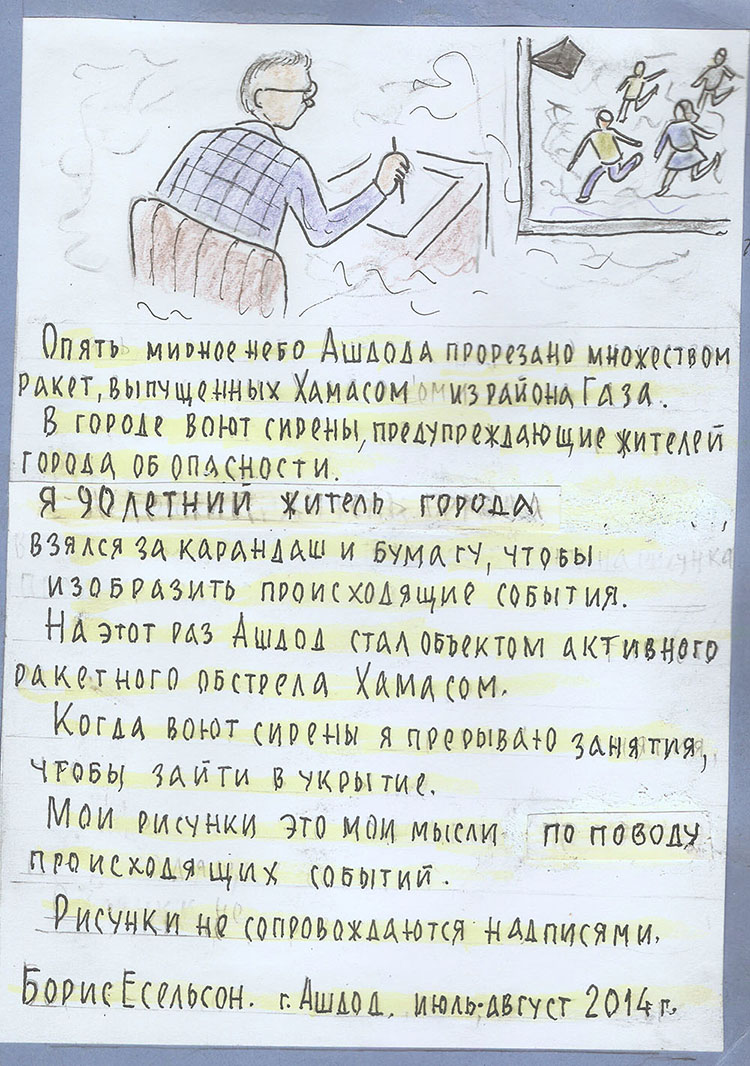 Опять мирное небо Ашдода прорезано множеством
ракет, выпущенных Хамасом из района Газа.
В городе воют сирены, предупреждающие жителей
города об опасности.
Я 90летний житель города
взялся за карандаш и бумагу, чтобы
изобразить происходящие события.
На этот раз Ашдод стал объектом активного
ракетного обстрела Хамасом.
Когда воют сирены я прерываю занятия,
чтобы зайти в укрытие.
Мои рисунки это мои мысли по поводу
происходящих событий.
Рисунки не сопровождаются надписями.
Борис Есельсон. г. Ашдод, июль-август 2014 г.